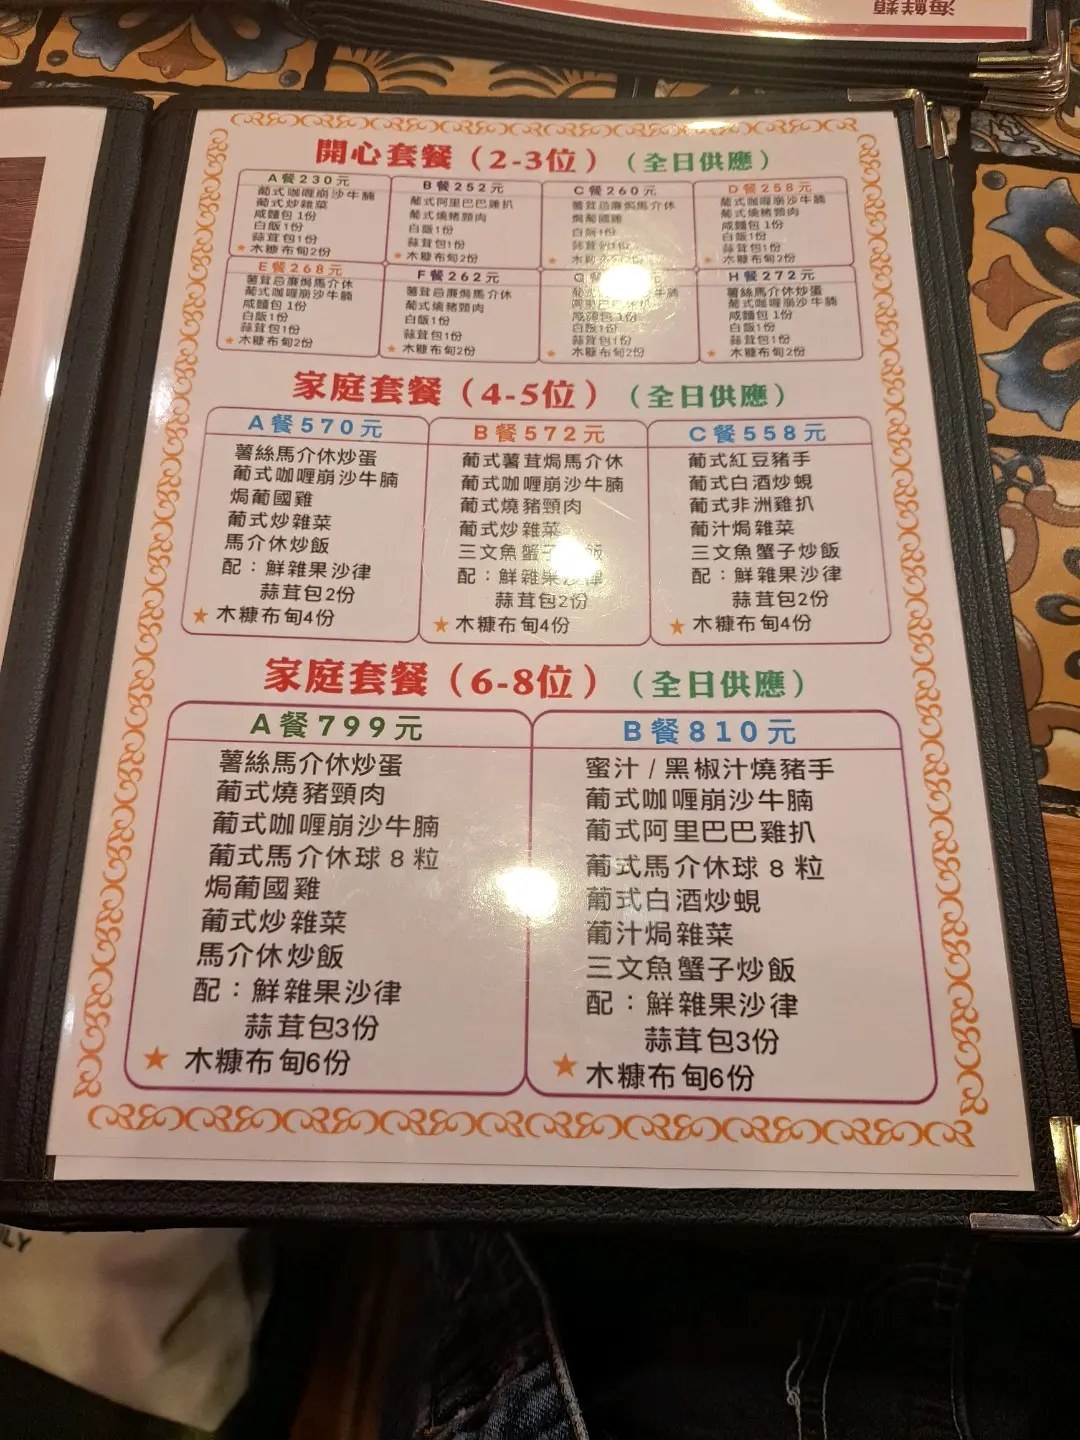 海鮮類
開心套餐（2-3位）（全日供應）
A餐230元
葡式咖喱崩沙牛腩
葡式炒雜菜
咸麵包 1份
白飯1份
蒜茸包1份
★ 木糠布甸2份
B餐252元
葡式阿里巴巴雞扒
葡式燒豬頸肉
白飯1份
蒜茸包1份
★ 木糠布甸2份
C餐260元
薯茸忌廉焗馬介休
焗葡國雞
白飯1份
蒜茸包1份
★ 木糠布甸2份
D餐258元
葡式咖喱崩沙牛腩
葡式燒豬頸肉
咸麵包 1份
白飯1份
蒜茸包1份
★ 木糠布甸2份
E餐268元
薯茸忌廉焗馬介休
葡式咖喱崩沙牛腩
咸麵包 1份
白飯1份
蒜茸包1份
★ 木糠布甸2份
F餐262元
薯茸忌廉焗馬介休
葡式燒豬頸肉
白飯1份
蒜茸包1份
★ 木糠布甸2份
G餐
牛腩
阿里巴巴雞扒
咸麵包 1份
白飯1份
蒜茸包1份
★ 木糠布甸2份
H餐272元
薯絲馬介休炒蛋
葡式咖喱崩沙牛腩
咸麵包 1份
白飯1份
蒜茸包1份
★ 木糠布甸2份
家庭套餐（4-5位）（全日供應）
A餐570元
薯絲馬介休炒蛋
葡式咖喱崩沙牛腩
焗葡國雞
葡式炒雜菜
馬介休炒飯
配：鮮雜果沙律
蒜茸包2份
★ 木糠布甸4份
B餐572元
葡式薯茸焗馬介休
葡式咖喱崩沙牛腩
葡式燒豬頸肉
葡式炒雜菜
三文魚蟹子炒飯
配：鮮雜果沙律
蒜茸包2份
★ 木糠布甸4份
C餐558元
葡式紅豆豬手
葡式白酒炒蜆
葡式非洲雞扒
葡汁焗雜菜
三文魚蟹子炒飯
配：鮮雜果沙律
蒜茸包2份
★ 木糠布甸4份
家庭套餐（6-8位）（全日供應）
A餐799元
薯絲馬介休炒蛋
葡式燒豬頸肉
葡式咖喱崩沙牛腩
葡式馬介休球 8 粒
焗葡國雞
葡式炒雜菜
馬介休炒飯
配：鮮雜果沙律
蒜茸包3份
★ 木糠布甸6份
B餐810元
蜜汁 / 黑椒汁燒豬手
葡式咖喱崩沙牛腩
葡式阿里巴巴雞扒
葡式馬介休球 8 粒
葡式白酒炒蜆
葡汁焗雜菜
三文魚蟹子炒飯
配：鮮雜果沙律
蒜茸包3份
★ 木糠布甸6份